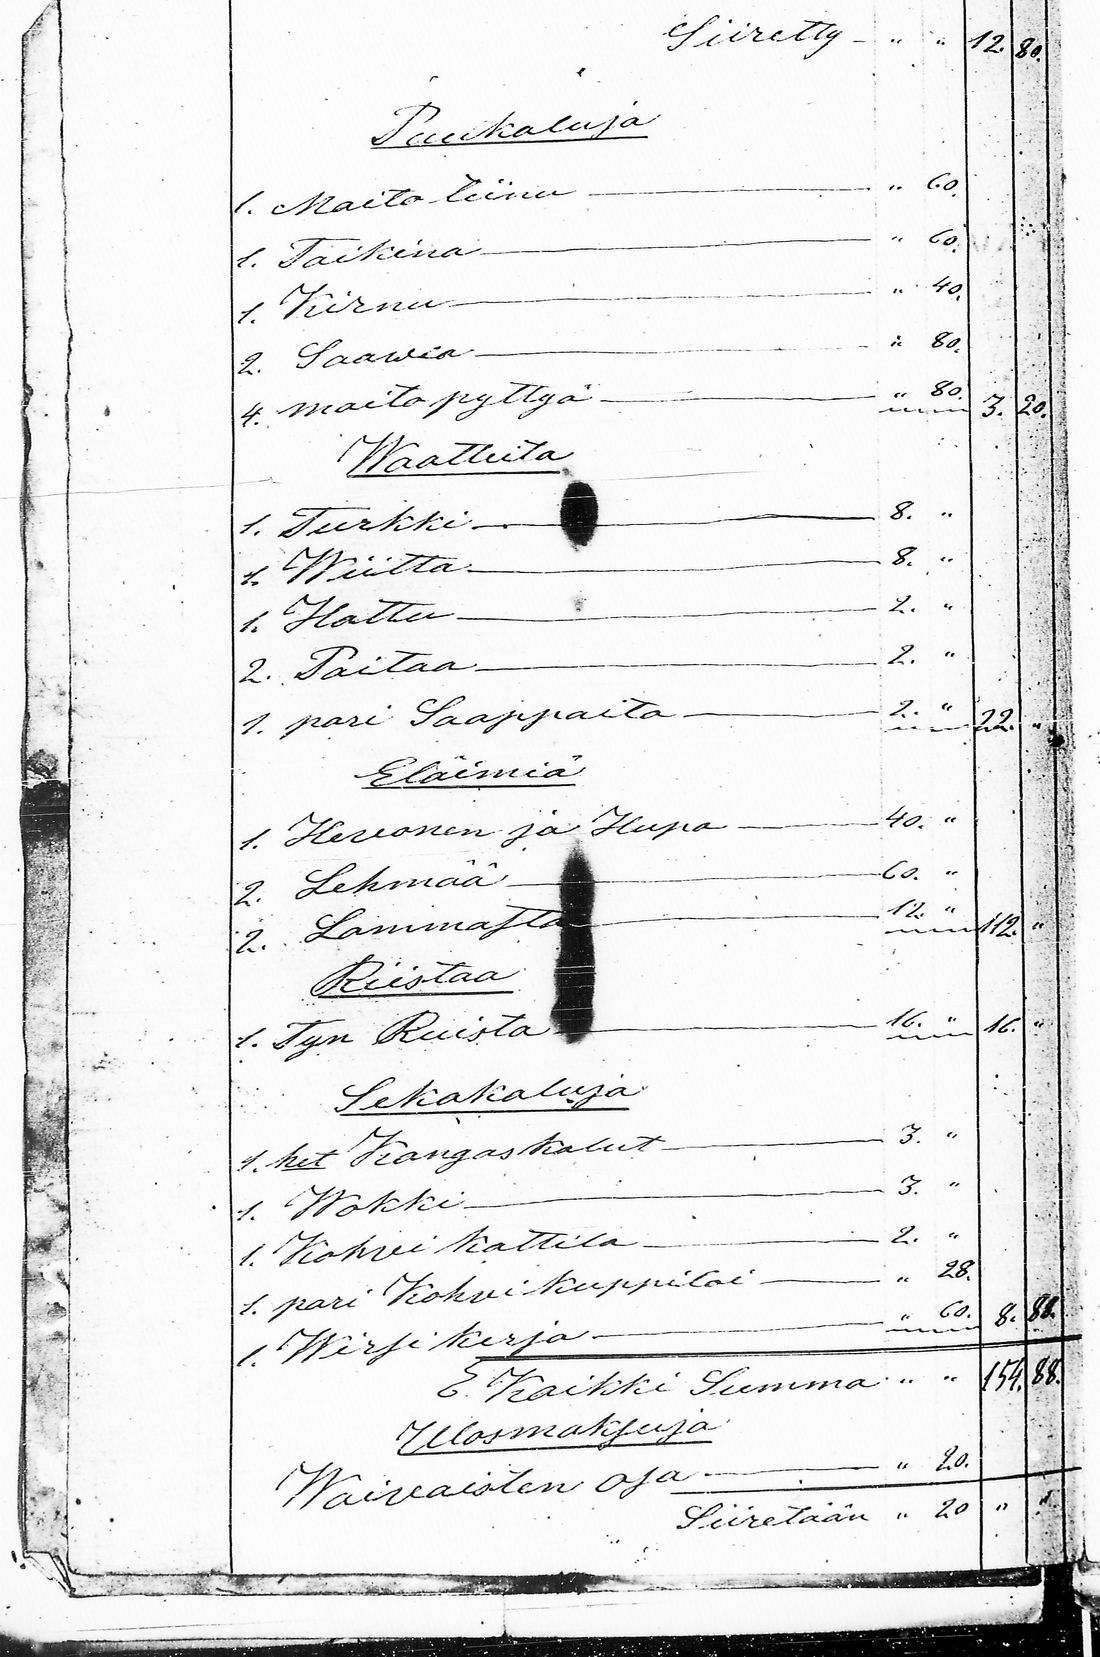 Siiretty - " " 12. 80.
Puukaluja
1. Maito tiinu " 60.
1. Taikina " 60.
1. Kirnu " 40.
2. Saawia " 80.
4. maito pyttyä " 80. 3. 20.
Waatteita
1. Turkki 8. "
1. Wiitta 8. "
1. Hattu 2. "
2. Paitaa 2. "
1. pari Saappaita 2. " 22. "
Eläimiä
1. Hevonen ja Hupa 40. "
2. Lehmää 60. "
2. Lammasta 12. " 112. "
Riistaa
1. Tyn Ruista 16. " 16. "
Sekakaluja
1. het Kangaskalut 3. "
1. Wokki 3. "
1. Kohvi kattila 2. "
1. pari Kohvi kuppiloi " 28.
1. Wirsi kirja " 60. 8. 88.
E. Kaikki Summa " " 154. 88.
Ulosmaksuja
Waivaisten osa " 20.
Siiretään " 20 " "